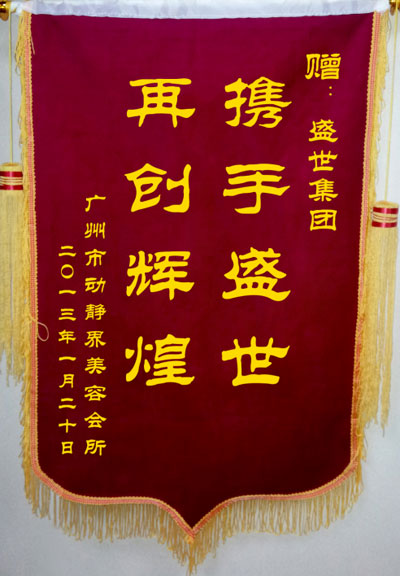 赠：盛世集团
携手盛世
再创辉煌
广州市动静界美容会所
二〇一三年一月二十日